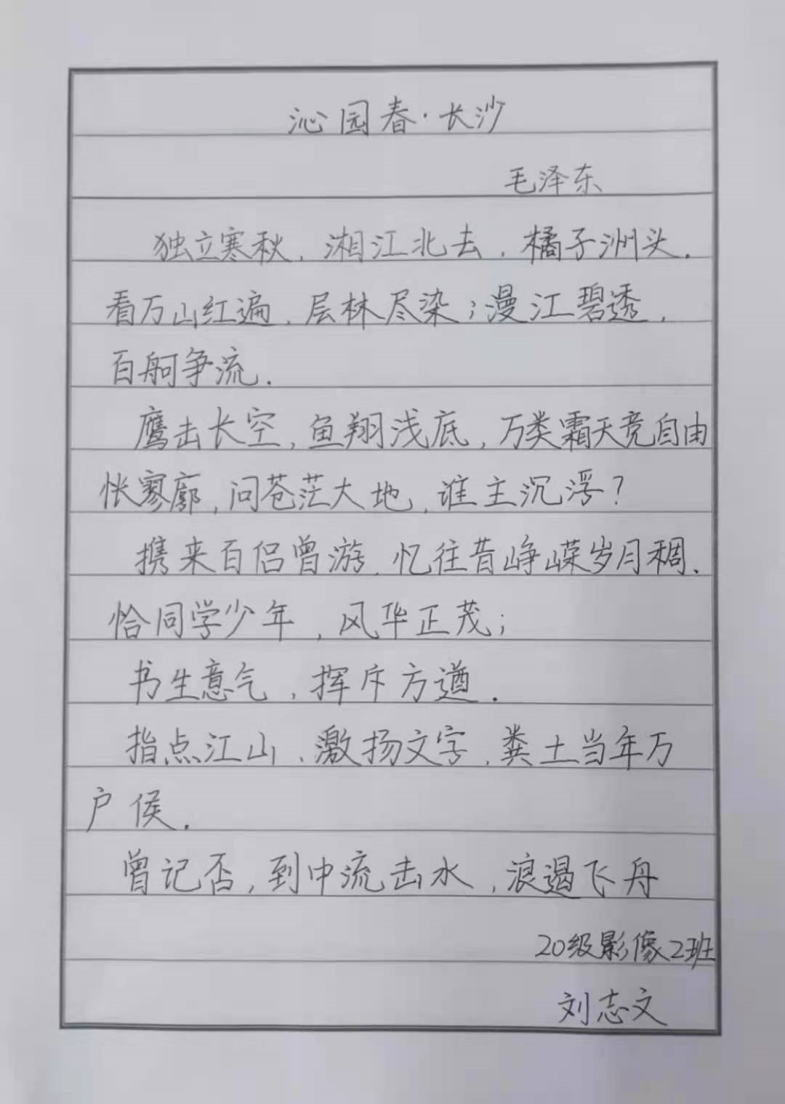 沁园春·长沙
毛泽东
独立寒秋,湘江北去,橘子洲头.
看万山红遍,层林尽染;漫江碧透,
百舸争流.
鹰击长空,鱼翔浅底,万类霜天竞自由
怅寥廓,问苍茫大地,谁主沉浮?
携来百侣曾游.忆往昔峥嵘岁月稠.
恰同学少年,风华正茂;
书生意气,挥斥方遒.
指点江山,激扬文字,粪土当年万
户侯.
曾记否,到中流击水,浪遏飞舟
20级影像2班
刘志文